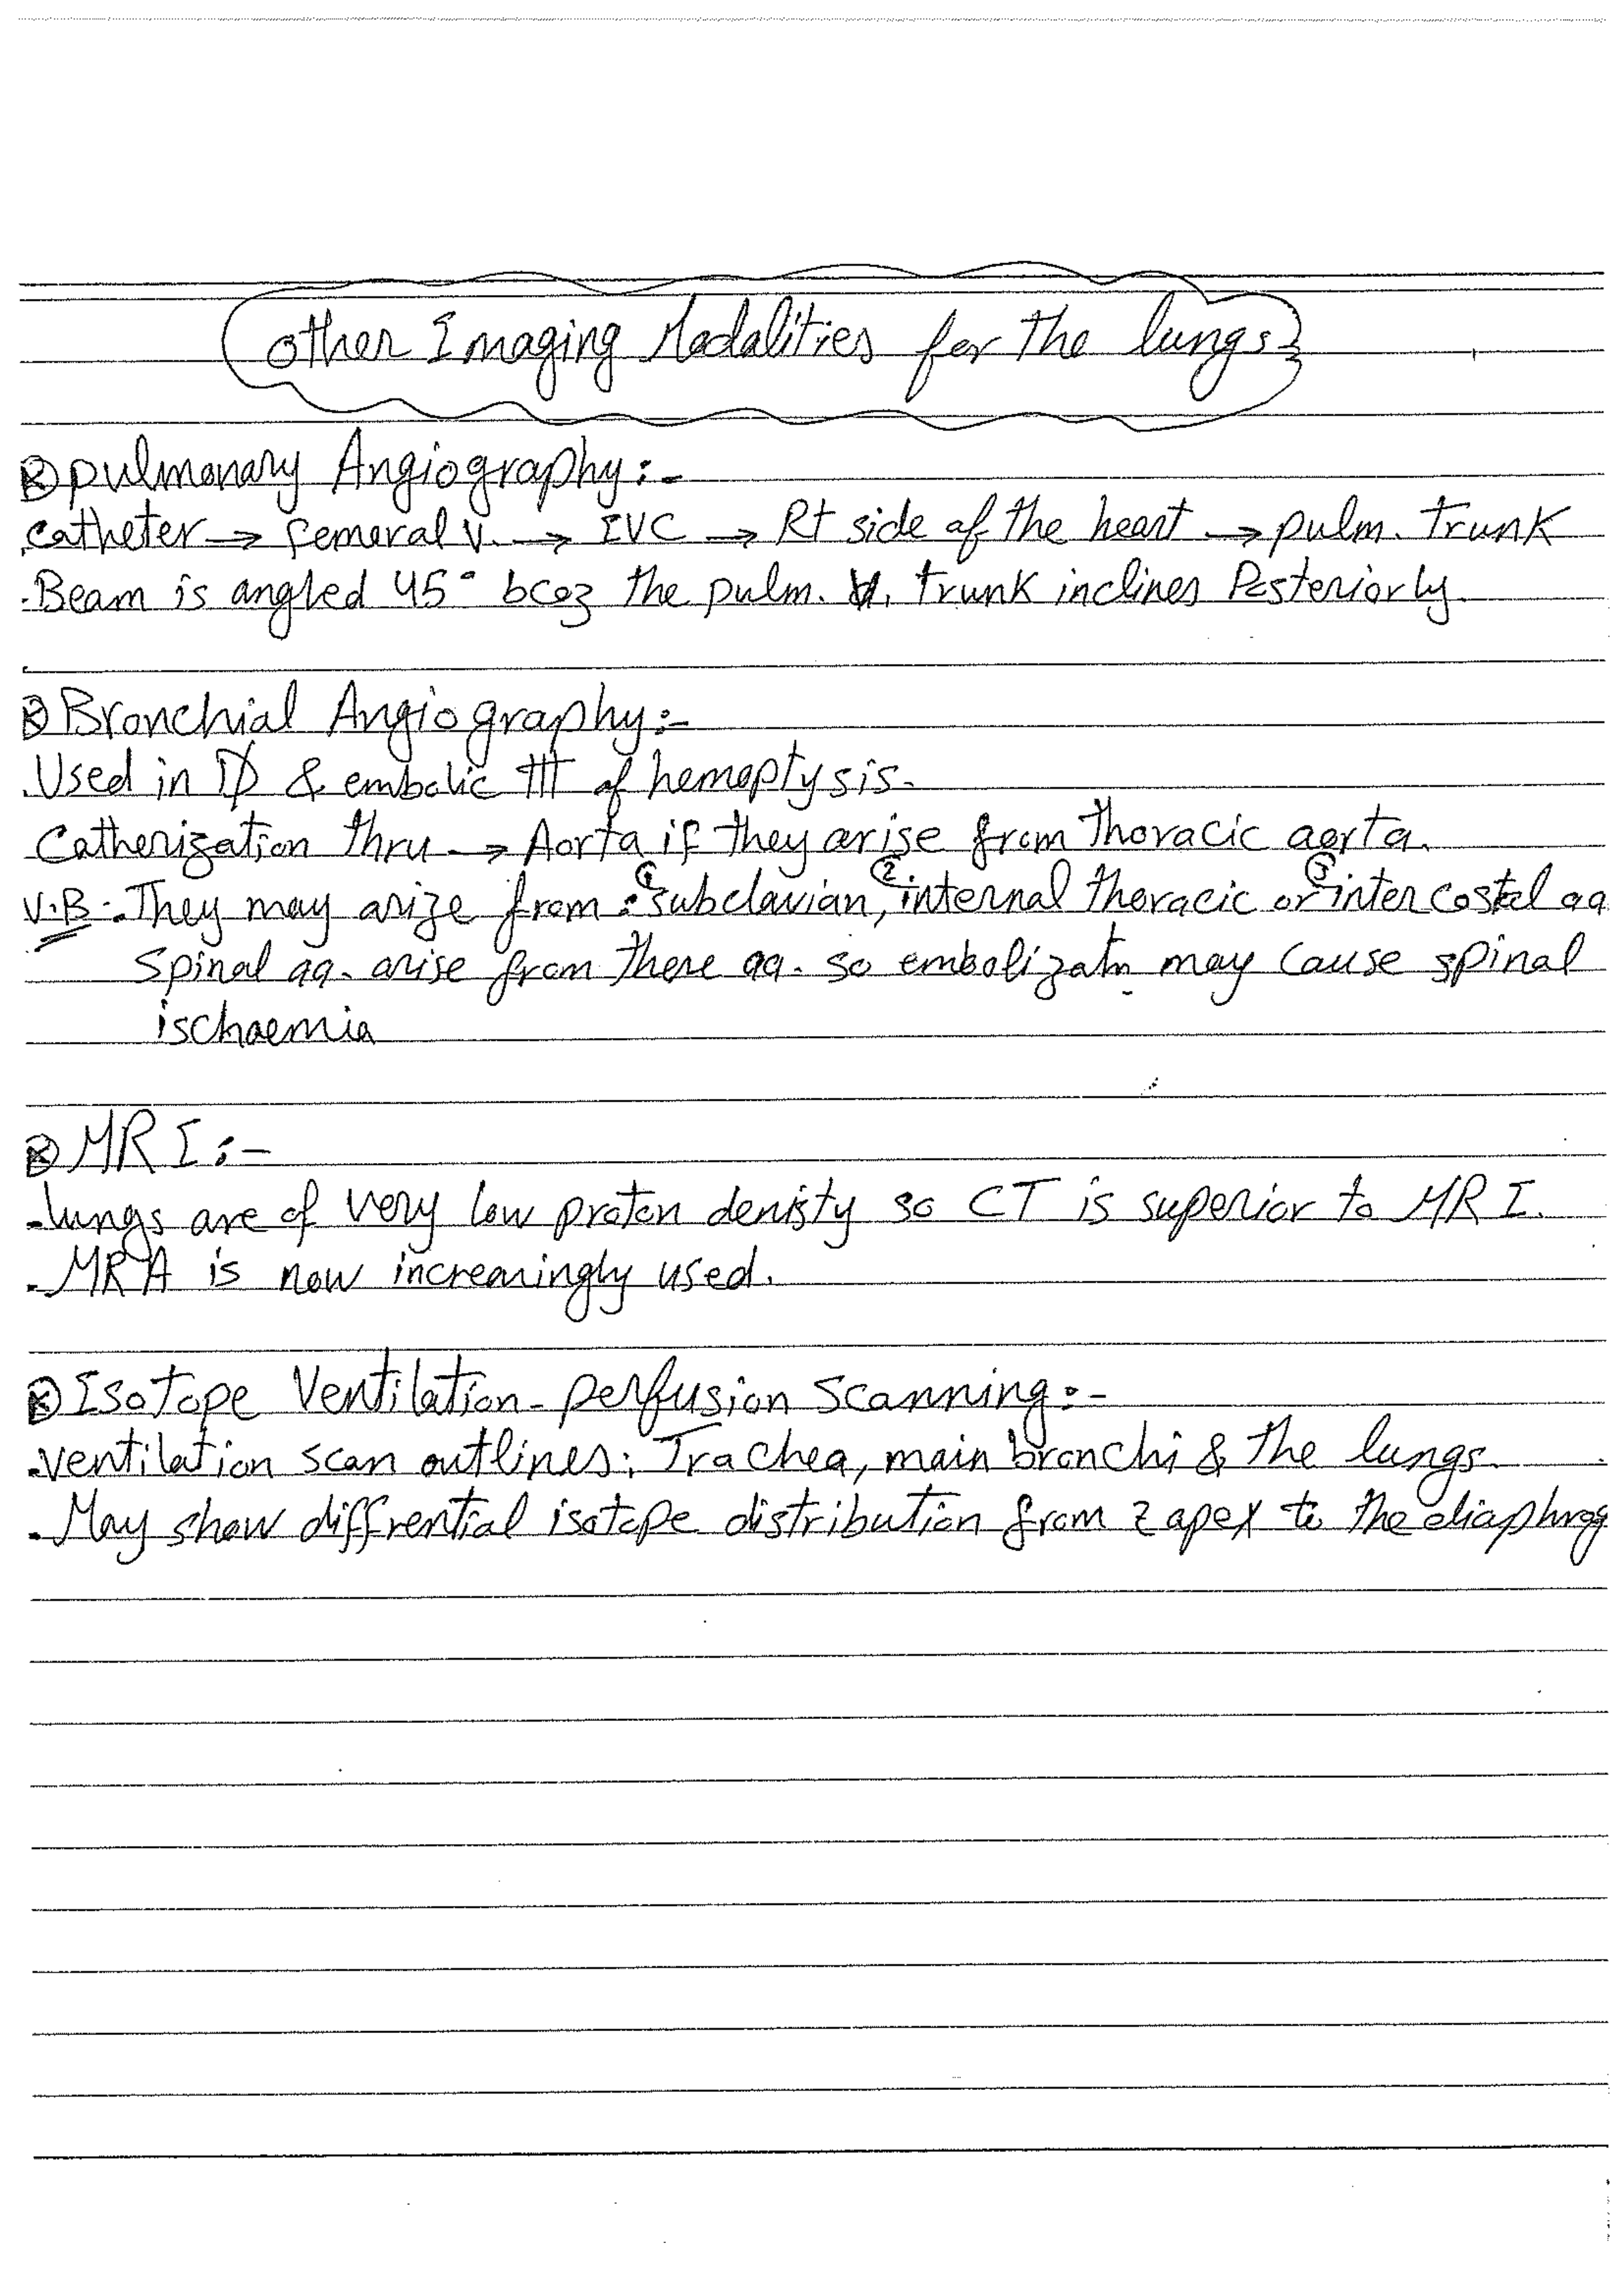 other Imaging Modalities for the lungs
pulmonary Angiography:-
catheter → femoral v. → IVC → Rt side of the heart → pulm. trunk
-Beam is angled 45° bcoz the pulm. trunk inclines Posteriorly.
Bronchial Angiography:-
.Used in & embolic ttt of hemoptysis.
Catherization thru → Aorta if they arise from thoracic aorta.
V.B:. They may arize from: ① subclavian, ② internal thoracic or ③ intercostal aa
Spinal aa. arise from there aa. so embolizatn may cause spinal
ischaemia
MRI:-
-lungs are of very low proton denisty so CT is superior to MRI.
. MRA is now increasingly used.
Isotope Ventilation-perfusion Scanning:-
.ventilation scan outlines: Trachea, main bronchi & the lungs.
. May show diffrential isotope distribution from z apex to the diaphrag